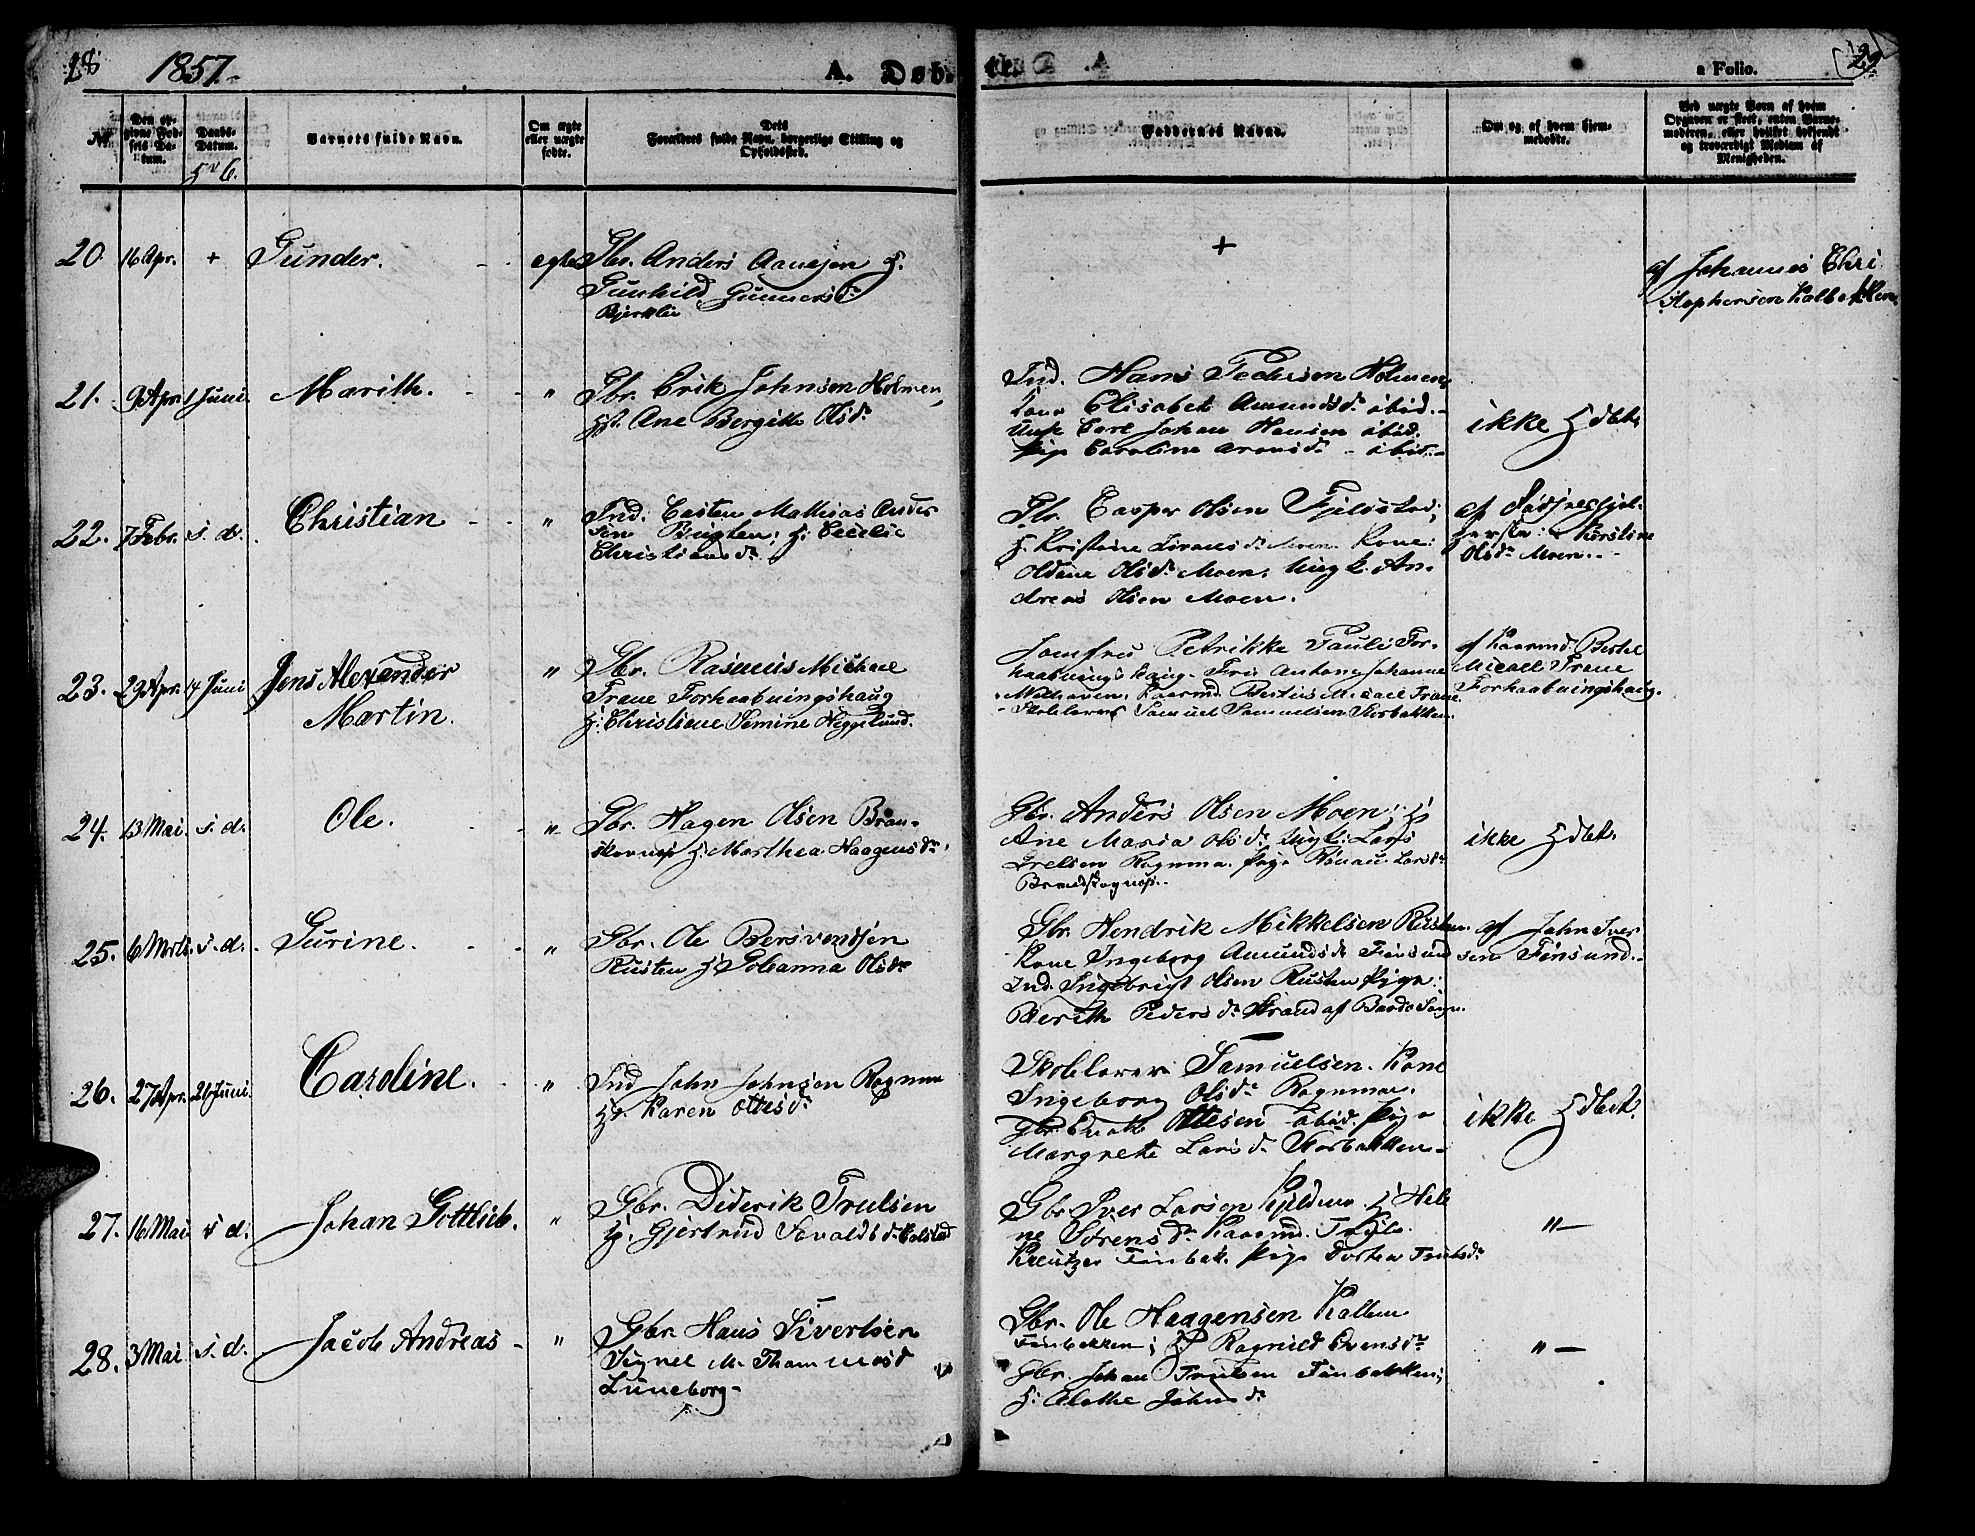 28
1857.
A. Døb-
te.
a Folio.
29
№
Den opgivne Fødsels Datum.
Daabs-Datum.
Barnets fulde Navn.
Om ægte eller uægte fødte.
Dets Forældres fulde Navn, borgerlige Stilling og Opholdssted.
Faddernes Navne.
Om og af hvem hjemmedøbt.
Ved uægte Børn af hvem Opgaven er skeet, enten Barnemoderen, eller hvilket voksendt og troværdigt Medlem af Menigheden.
20. 16 Apr. + Gunder. - egte
Gbr. Anders Aanesen H.
Gunhild Gunnersdr
Bjerklie
+
af Johannes Chri
stophersen Kolbekken.
21. 9 Apr. 1 Juni Marith. - "
Gbr. Erik Johnsen Holmen,
H. Ane Bergitte Olsdr
Ind. Hans Pedersen Holmen,
Kone Elisabet Amundsdr ibid. -
Ungk Carl Johan Hansen ibid.
Pige Caroline Aronsdr - ibid. -
ikke Hdbt.
22. 7 Febr. s. d. Christian - "
Ind. Casten Mathias Ander
sen ; H. Cecilie
Christiansdr
Gbr. Casper Olsen Fjeldstad;
H. Kristine Moen. Kone:
Oldine Olsdr Moen. Ungk. An-
dreas Olsen Moen.
af
Kirstine
Olsdr Moen. -
23. 29 Apr. 14 Juni Jens Alexander
Martin. "
Gbr. Rasmus Michael
Trane Forhaabningshaug
H. Christiane Jemine Heggelund.
Jomfru Petrikke Pauli For-
haabnings haug. Antone Johanne
Kaarmd. Bertius Micael Trane
Skolelærer Samuel Samuelsen Storbakken.
af Kaarmd. Bertel
Micael Trane
Forhaabningshaug.
24. 13 Mai. s. d. Ole. - "
Gbr. Hagen Olsen Bran-
skovnæs H. Marthea Haagensdr.
Gbr. Anders Olsen Moen; H
Ane Maria Olsdr. Ungk: Lars
Ragnmo. Pige Larsdr
ikke Hdbt.
25. 6 s. d. Gurine. - "
Gbr. Ole Bersvendsen
Rusten H. Johanna Olsdr
Gbr. Hendrik Mikkelsen Rusten.
Kone Ingeborg Amundsdr Finsund
Ind. Ingebrigt Olsen Rusten Pige:
Berith Pedersdr Strand af Bardo Sogn.
af John Iver
sen Finsund. -
26. 27 Apr. 21 Juni. Caroline. - "
Ind John Johnsen Ragnmo
H. Karen Ottesdr
Skolelærer Samuelsen. Kone
Ingeborg Olsdr Ragnmo.
Gbr. Ottesen ibid. Pige
Margrete Larsdr Storbakken -
ikke Hdbt.
27. 16 Mai s d. Johan Gottlieb. "
Gbr. Diderik Trulsen
H. Gjertrud Sevaldsdr Kolstad
Gbr. Iver Larsen Kjeldmo H Hele
ne Sørensdr Kaarmd.
Kreutzer Finbak. Pige Dortea Trulsdr
" -
28. 3 Mai s. d. Jacob Andreas - "
Gbr. Hans Sivertsen
Signel M. Thommasd
Luneborg -
Gbr. Ole Haagensen Kolben
Finbakken; H. Ragnild Evensdr
Gbr. Johan Trulsen Finbakken;
H. Johnsdr
" -